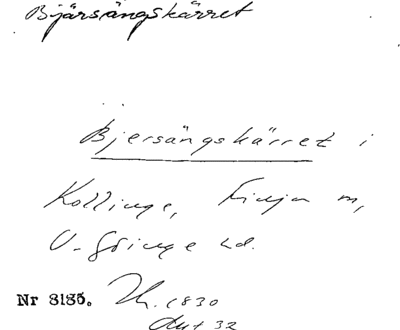 Bjärsängskärret
Bjersängskärret i
Kollinge, Finja m,
V. Göinge hd.
Nr 8185. 1830
Akt 32